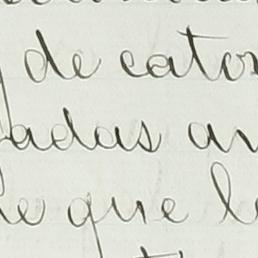 de cator
adas an
de que le